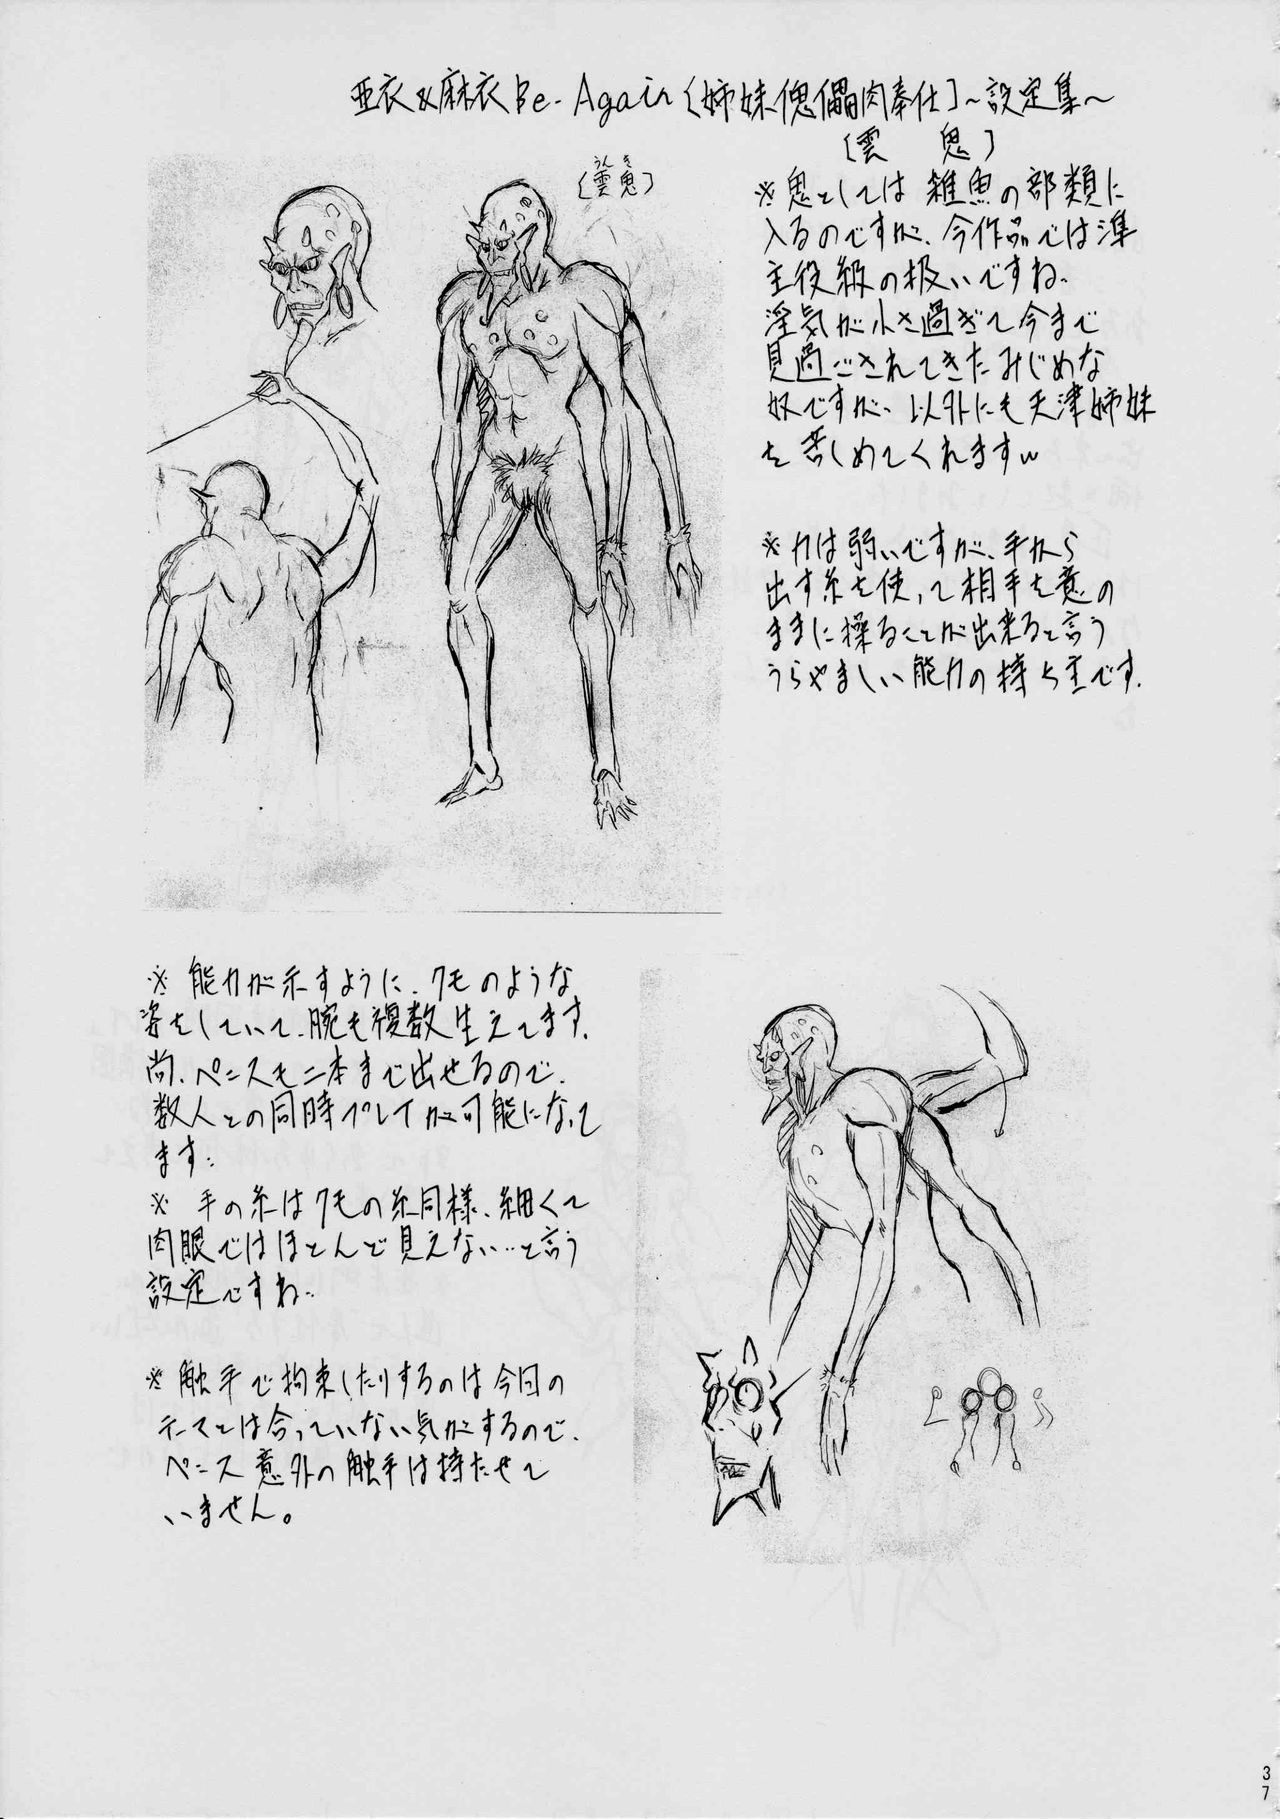 亜衣&麻衣 Be-Again〔姉妹傀儡肉奉仕〕~設定集~
〔雲鬼〕
うんき
〔雲鬼〕
※鬼としては雑魚の部類に
入るのですが、今作品では準
主役級の扱いですね。
淫気が小さ過ぎて今まで
見過ごされてきたみじめな
奴ですが、以外にも天津姉妹
を苦しめてくれますw
※力は弱いですが、手から
出す糸を使って相手を意の
ままに操ることが出来ると言う
うらやましい能力の持ち主です。
※能力が示すように、クモのような
姿をしていて、腕も複数生えてます。
尚、ペニスも二本まで出せるので、
数人との同時プレイが可能になって
ます。
※手の糸はクモの糸同様、細くて
肉眼ではほとんど見えない…と言う
設定ですね。
※触手で拘束したりするのは今回の
テーマとは合っていない気がするので、
ペニス意外の触手は持たせて
いません。
37